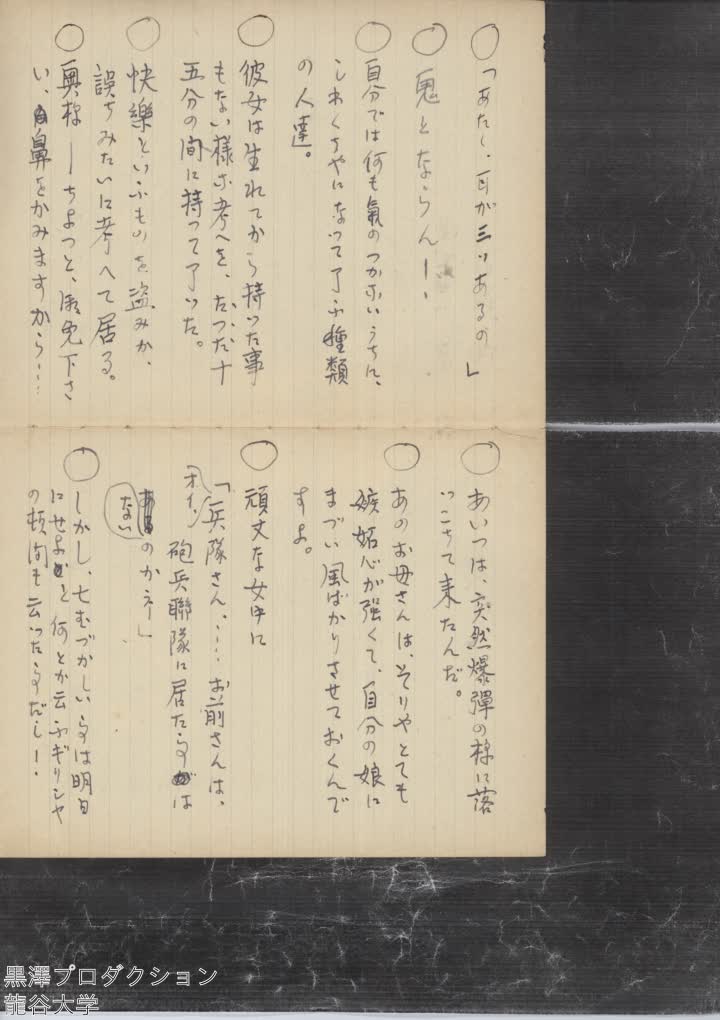 ○「あたし、耳が三ツあるの」
○鬼とならん！！
○自分では何も氣のつかないうちに、
しわくちやになつて了ふ種類
の人達。
○彼女は生れてから持つた事
もない様な考へを、たつた十
五分の間に持つて了つた。
○快樂といふものを盗みか、
誤ちみたいに考へて居る。
○奥様！ちよつと、御免下さ
い、鼻をかみますから……
○あいつは、突然爆彈の様に落
つこちて来たんだ。
○あのお母さんは、そりやとても
嫉妬心が強くて、自分の娘に
まづい風ばかりさせておくんで
すよ。
○頑丈な女中に
「オイ、兵隊さん、……お前さんは、
砲兵聯隊に居た事は
ないのかネ！」
○しかし、七むづかしい事は明日
にせよと何とか云ふギリシヤ
の頓間も云つた事だし！！
黒澤プロダクション
龍谷大学